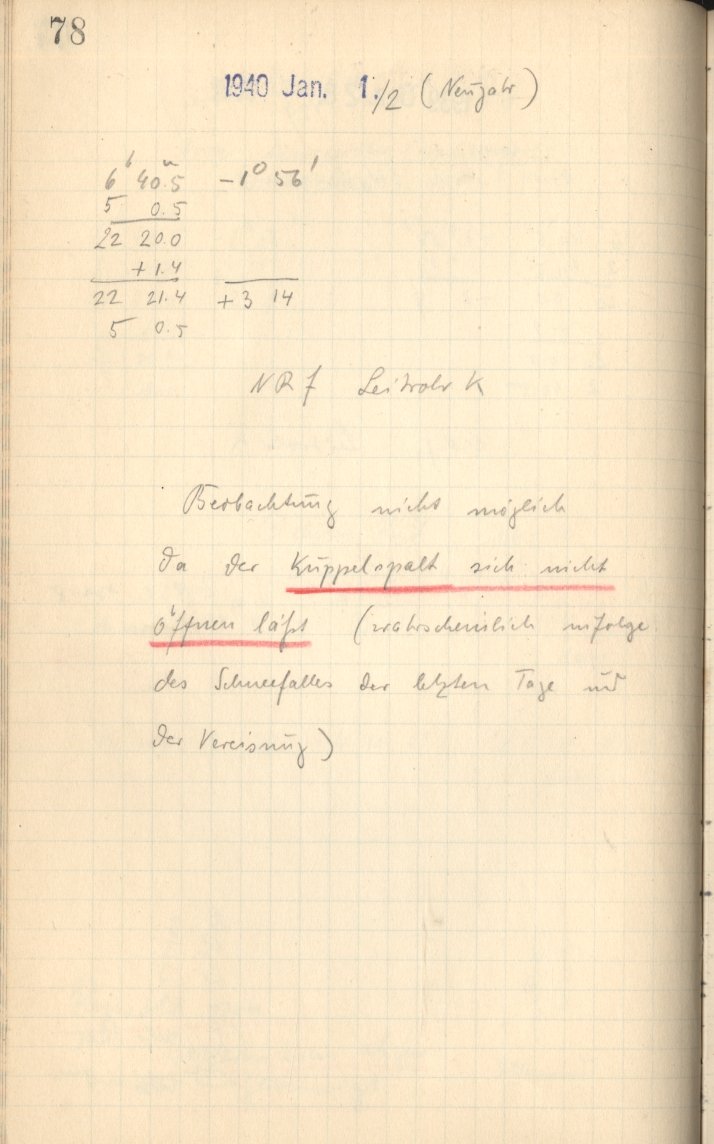 78
1940 Jan. 1./2 (Neujahr)
6ʰ 40ᵐ.5 −1° 56'
5 0.5
22 20.0
+1.4
22 21.4 +3 14
5 0.5
NR f Leitrohr K
Beobachtung nicht möglich
da der Kuppelspalt sich nicht
öffnen läßt (wahrscheinlich infolge
des Schneefalles der letzten Tage und
der Vereisung)